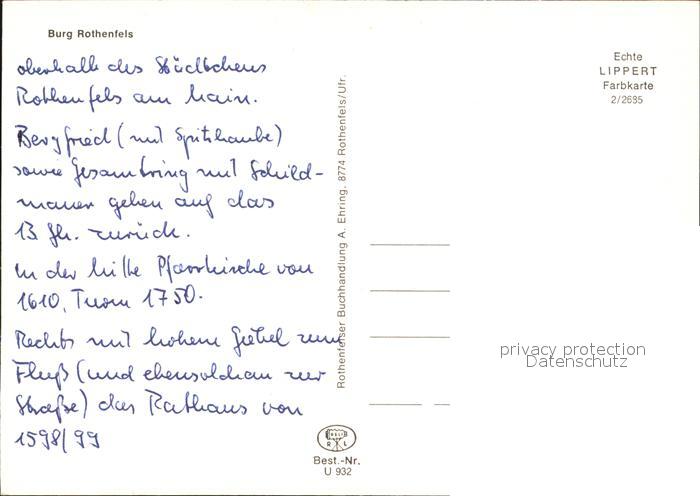 Burg Rothenfels
oberhalb des Städtchens
Rothenfels am Main.
Bergfried (mit Spitzhaube)
sowie Gesamtring mit Schild-
mauer gehen auf das
13. Jh. zurück.
In der Mitte Pfarrkirche von
1610, Turm 1750.
Rechts mit hohem Giebel zum
Fluß (und ebensolchem zur
Straße) das Rathaus von
1598/99
Rothenfelser Buchhandlung A. Ehring, 8774 Rothenfels/Ufr.
Best.-Nr.
U 932
Echte
LIPPERT
Farbkarte
2/2685
privacy protection
Datenschutz